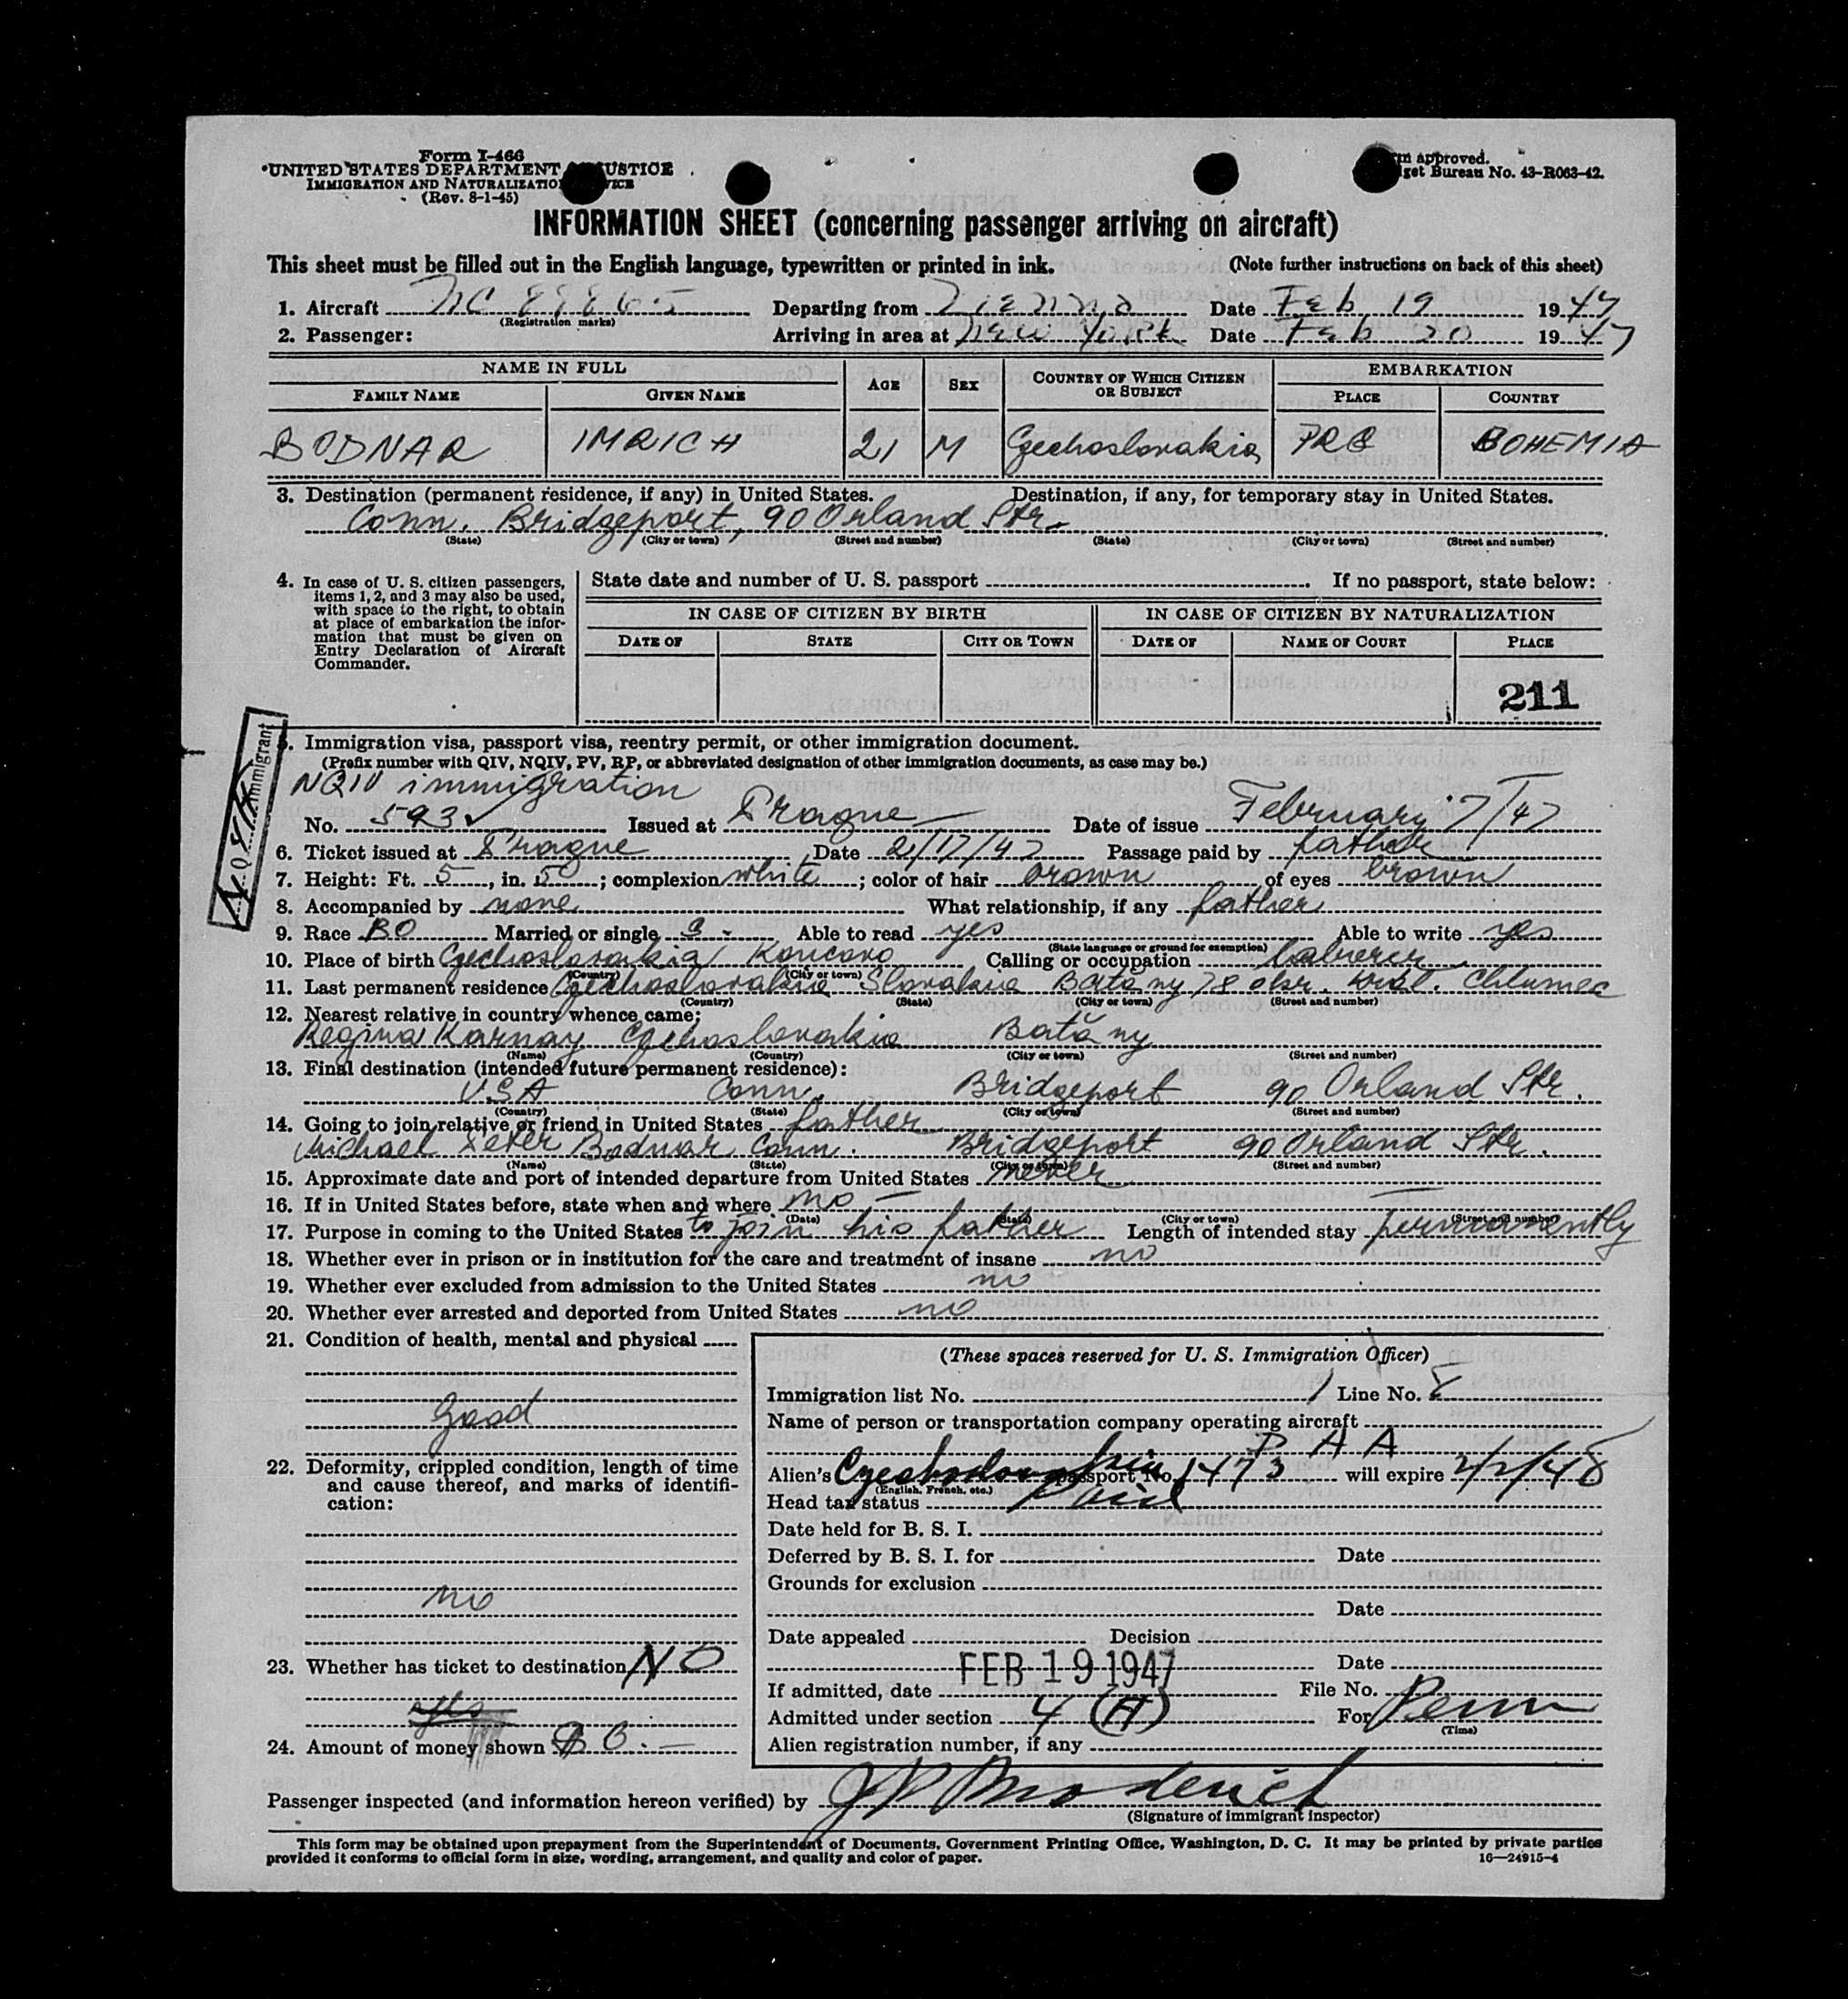 Form I-466
UNITED STATES DEPARTMENT USTICE
IMMIGRATION AND NATURALIZATIO VICE
(Rev. 8-1-45)
m approved.
get Bureau No. 43-R063-42.
INFORMATION SHEET (concerning passenger arriving on aircraft)
This sheet must be filled out in the English language, typewritten or printed in ink. (Note further instructions on back of this sheet)
1. Aircraft NC 88865 Departing from Vienna Date Feb 19 1947
(Registration marks)
2. Passenger: Arriving in area at New York Date Feb 20 1947
NAME IN FULL AGE SEX COUNTRY OF WHICH CITIZEN OR SUBJECT EMBARKATION
FAMILY NAME GIVEN NAME PLACE COUNTRY
BODNAR IMRICH 21 M Czechoslovakia PRG BOHEMIA
3. Destination (permanent residence, if any) in United States. Destination, if any, for temporary stay in United States.
Conn. Bridgeport, 90 Orland Str.
(State) (City or town) (Street and number) (State) (City or town) (Street and number)
4. In case of U. S. citizen passengers, items 1, 2, and 3 may also be used, with space to the right, to obtain at place of embarkation the information that must be given on Entry Declaration of Aircraft Commander.
State date and number of U. S. passport If no passport, state below:
IN CASE OF CITIZEN BY BIRTH IN CASE OF CITIZEN BY NATURALIZATION
DATE OF STATE CITY OR TOWN DATE OF NAME OF COURT PLACE
211
5. Immigration visa, passport visa, reentry permit, or other immigration document.
(Prefix number with QIV, NQIV, PV, RP, or abbreviated designation of other immigration documents, as case may be.)
Immigrant
NQIV immigration
No. 593 Issued at Prague Date of issue February 7/47
6. Ticket issued at Prague Date 2/17/47 Passage paid by father
7. Height: Ft. 5, in. 5; complexion white; color of hair brown of eyes brown
8. Accompanied by none What relationship, if any father
9. Race BO Married or single S - Able to read yes Able to write yes
(State language or ground for exemption)
10. Place of birth Czechoslovakia Koncovo Calling or occupation laborer
(Country) (City or town)
11. Last permanent residence Czechoslovakia Slovakia Batány 78 okr. Král. Chlumec
(Country) (State) (City or town) (Street and number)
12. Nearest relative in country whence came:
Regina Karnay Czechoslovakia Batány
(Name) (Country) (City or town) (Street and number)
13. Final destination (intended future permanent residence):
USA Conn. Bridgeport 90 Orland Str.
(Country) (State) (City or town) (Street and number)
14. Going to join relative or friend in United States father
Michael Peter Bodnar Conn. Bridgeport 90 Orland Str.
(Name) (State) (City or town) (Street and number)
15. Approximate date and port of intended departure from United States never
16. If in United States before, state when and where no —
(Date) (State) (City or town) (Street and number)
17. Purpose in coming to the United States to join his father Length of intended stay permanently
18. Whether ever in prison or in institution for the care and treatment of insane no
19. Whether ever excluded from admission to the United States no
20. Whether ever arrested and deported from United States no
21. Condition of health, mental and physical
Good
22. Deformity, crippled condition, length of time and cause thereof, and marks of identification:
no
23. Whether has ticket to destination NO
yes
24. Amount of money shown
(These spaces reserved for U. S. Immigration Officer)
Immigration list No. 1 Line No. 8
Name of person or transportation company operating aircraft
P A A
Alien's Czechoslovakia passport No. 1473 will expire 2/2/48
(English, French, etc.)
Head tax status Paid
Date held for B. S. I.
Deferred by B. S. I. for Date
Grounds for exclusion
Date
Date appealed Decision
FEB 19 1947 Date
If admitted, date File No.
Admitted under section 4 (A) For Perm
(Time)
Alien registration number, if any
Passenger inspected (and information hereon verified) by
(Signature of immigrant inspector)
This form may be obtained upon prepayment from the Superintendent of Documents, Government Printing Office, Washington, D. C. It may be printed by private parties
provided it conforms to official form in size, wording, arrangement, and quality and color of paper.
16—24915-4